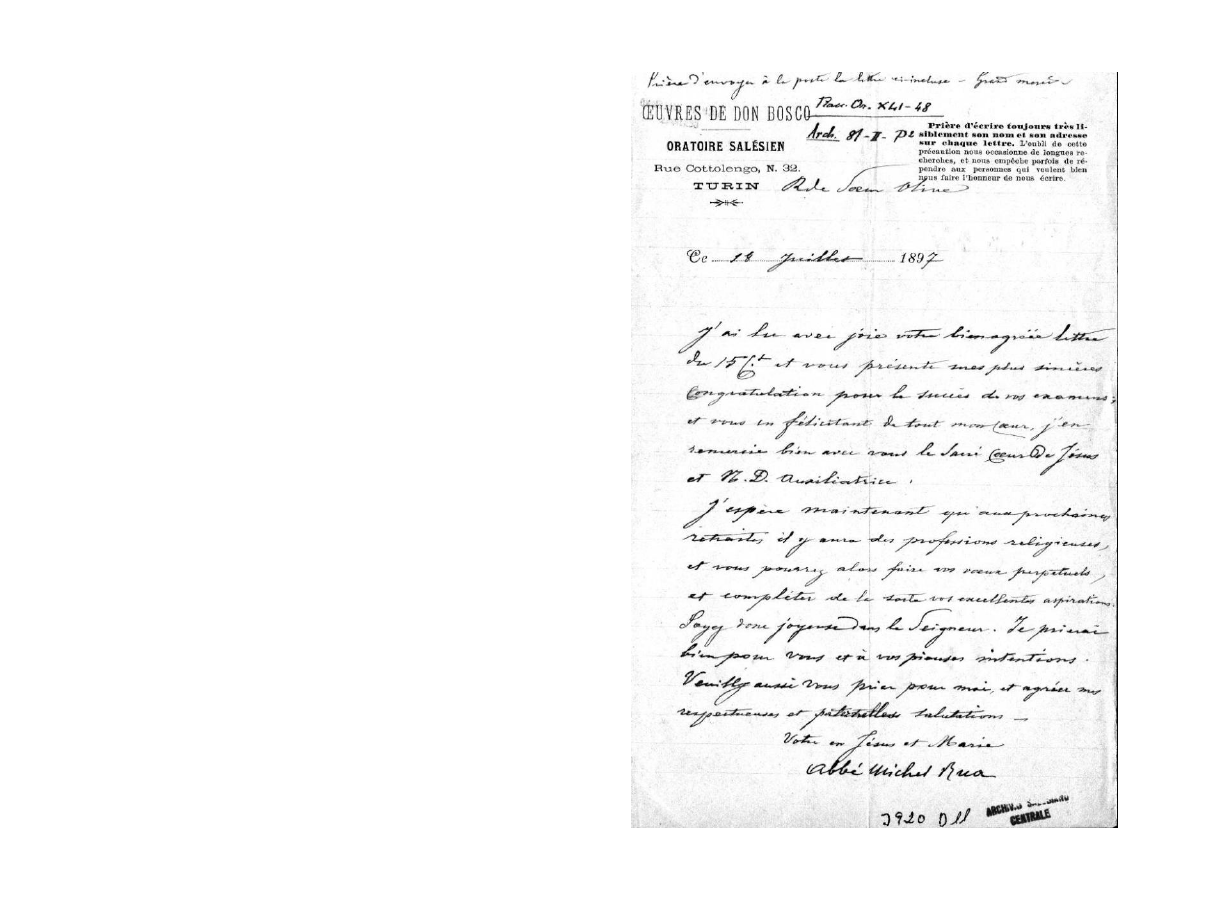 Prière d'envoyer à la poste la lettre ci-incluse – Grand merci
ŒUVRES DE DON BOSCO
Proc. On. XLI-48
Arch. 81-II-P2
ORATOIRE SALÉSIEN
Rue Cottolengo, N. 32.
TURIN
Prière d'écrire toujours très li-
siblement son nom et son adresse
sur chaque lettre. L'oubli de cette
précaution nous occasionne de longues re-
cherches, et nous empêche parfois de ré-
pondre aux personnes qui veulent bien
nous faire l'honneur de nous écrire.
Rde Sœur Olive
Ce 18 Juillet 1897
J'ai lu avec joie votre bien agréée lettre
du 15 Ct et vous présente mes plus sincères
Congratulation pour le succès de vos examens;
et vous en félicitant de tout mon Cœur, j'en
remercie bien avec vous le Sacré Cœur de Jésus
et N. D. Auxiliatrice.
J'espère maintenant qu'aux prochaines
retraites, il y aura des professions religieuses,
et vous pourrez alors faire vos vœux perpetuels,
et compléter de la sorte vos excellentes aspirations.
Soyez donc joyeuse dans le Seigneur. Je prierai
bien pour vous et à vos pieuses intentions.
Veuillez aussi vous prier pour moi, et agréer mes
respectueuses et paternelles salutations –
Votre en Jésus et Marie
Abbé Michel Rua
3920 D11
ARCHIVIO SALESIANO
CENTRALE